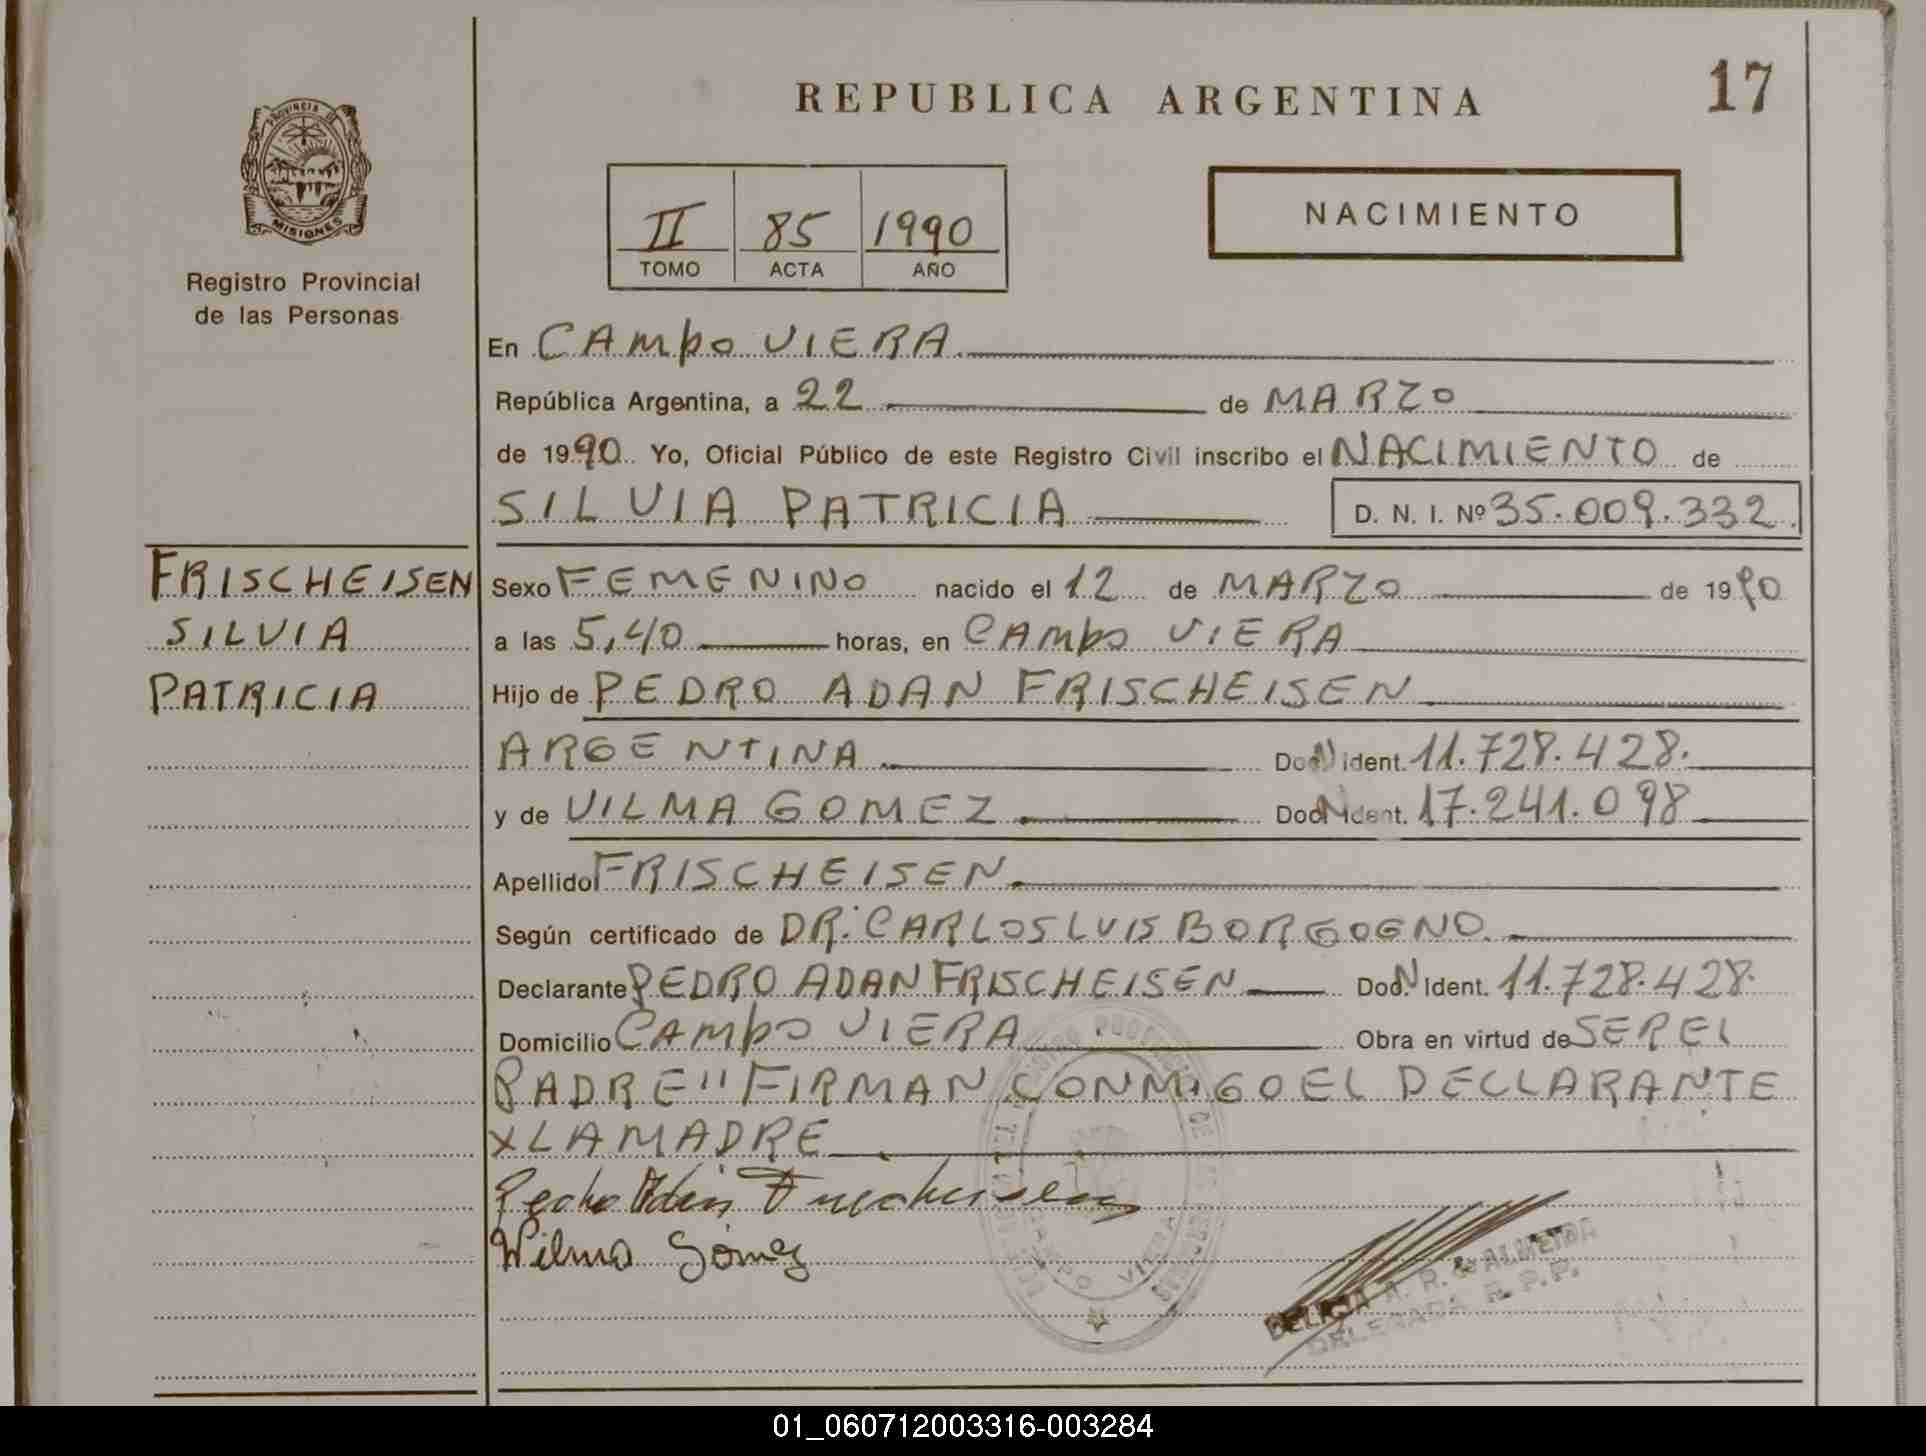 REPUBLICA ARGENTINA
17
PROVINCIA DE
MISIONES
Registro Provincial
de las Personas
II 85 1990
TOMO ACTA AÑO
NACIMIENTO
En CAMPO VIERA
República Argentina, a 22 de MARZO
de 1990 Yo, Oficial Público de este Registro Civil inscribo el NACIMIENTO de
SILVIA PATRICIA D. N. I. Nº 35.009.332
FRISCHEISEN
SILVIA
PATRICIA
Sexo FEMENINO nacido el 12 de MARZO de 1990
a las 5,40 horas, en CAMPO VIERA
Hijo de PEDRO ADAN FRISCHEISEN
ARGENTINA Doc. N Ident. 11.728.428.
y de VILMA GOMEZ Doc. N Ident. 17.241.098
Apellido FRISCHEISEN
Según certificado de DR. CARLOS LUIS BORGOGNO
Declarante PEDRO ADAN FRISCHEISEN Doc. N Ident. 11.728.428.
Domicilio CAMPO VIERA Obra en virtud de SER EL
PADRE" FIRMAN CONMIGO EL DECLARANTE
X LA MADRE
Pedro Adan Frischeisen
Wilma Gómez
CAMPO VIERA
DELICIA A. R. de ALMEIDA
DELEGADA R. P. P.
01_060712003316-003284